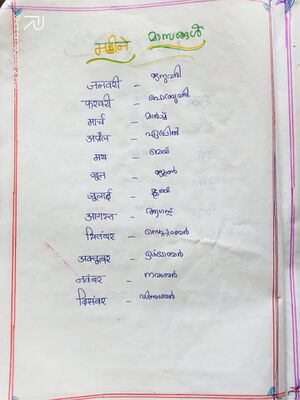 महीने മാസങ്ങൾ
जनवरी - ജനുവരി
फरवरी - ഫെബ്രുവരി
मार्च - മാർച്ച്
अप्रैल - ഏപ്രിൽ
मय - മെയ്
जून - ജൂൺ
जुलाई - ജൂലൈ
अगस्त - ആഗസ്റ്റ്
सितंबर - സെപ്റ്റംബർ
अक्टूबर - ഒക്ടോബർ
नवंबर - നവംബർ
दिसंबर - ഡിസംബർ